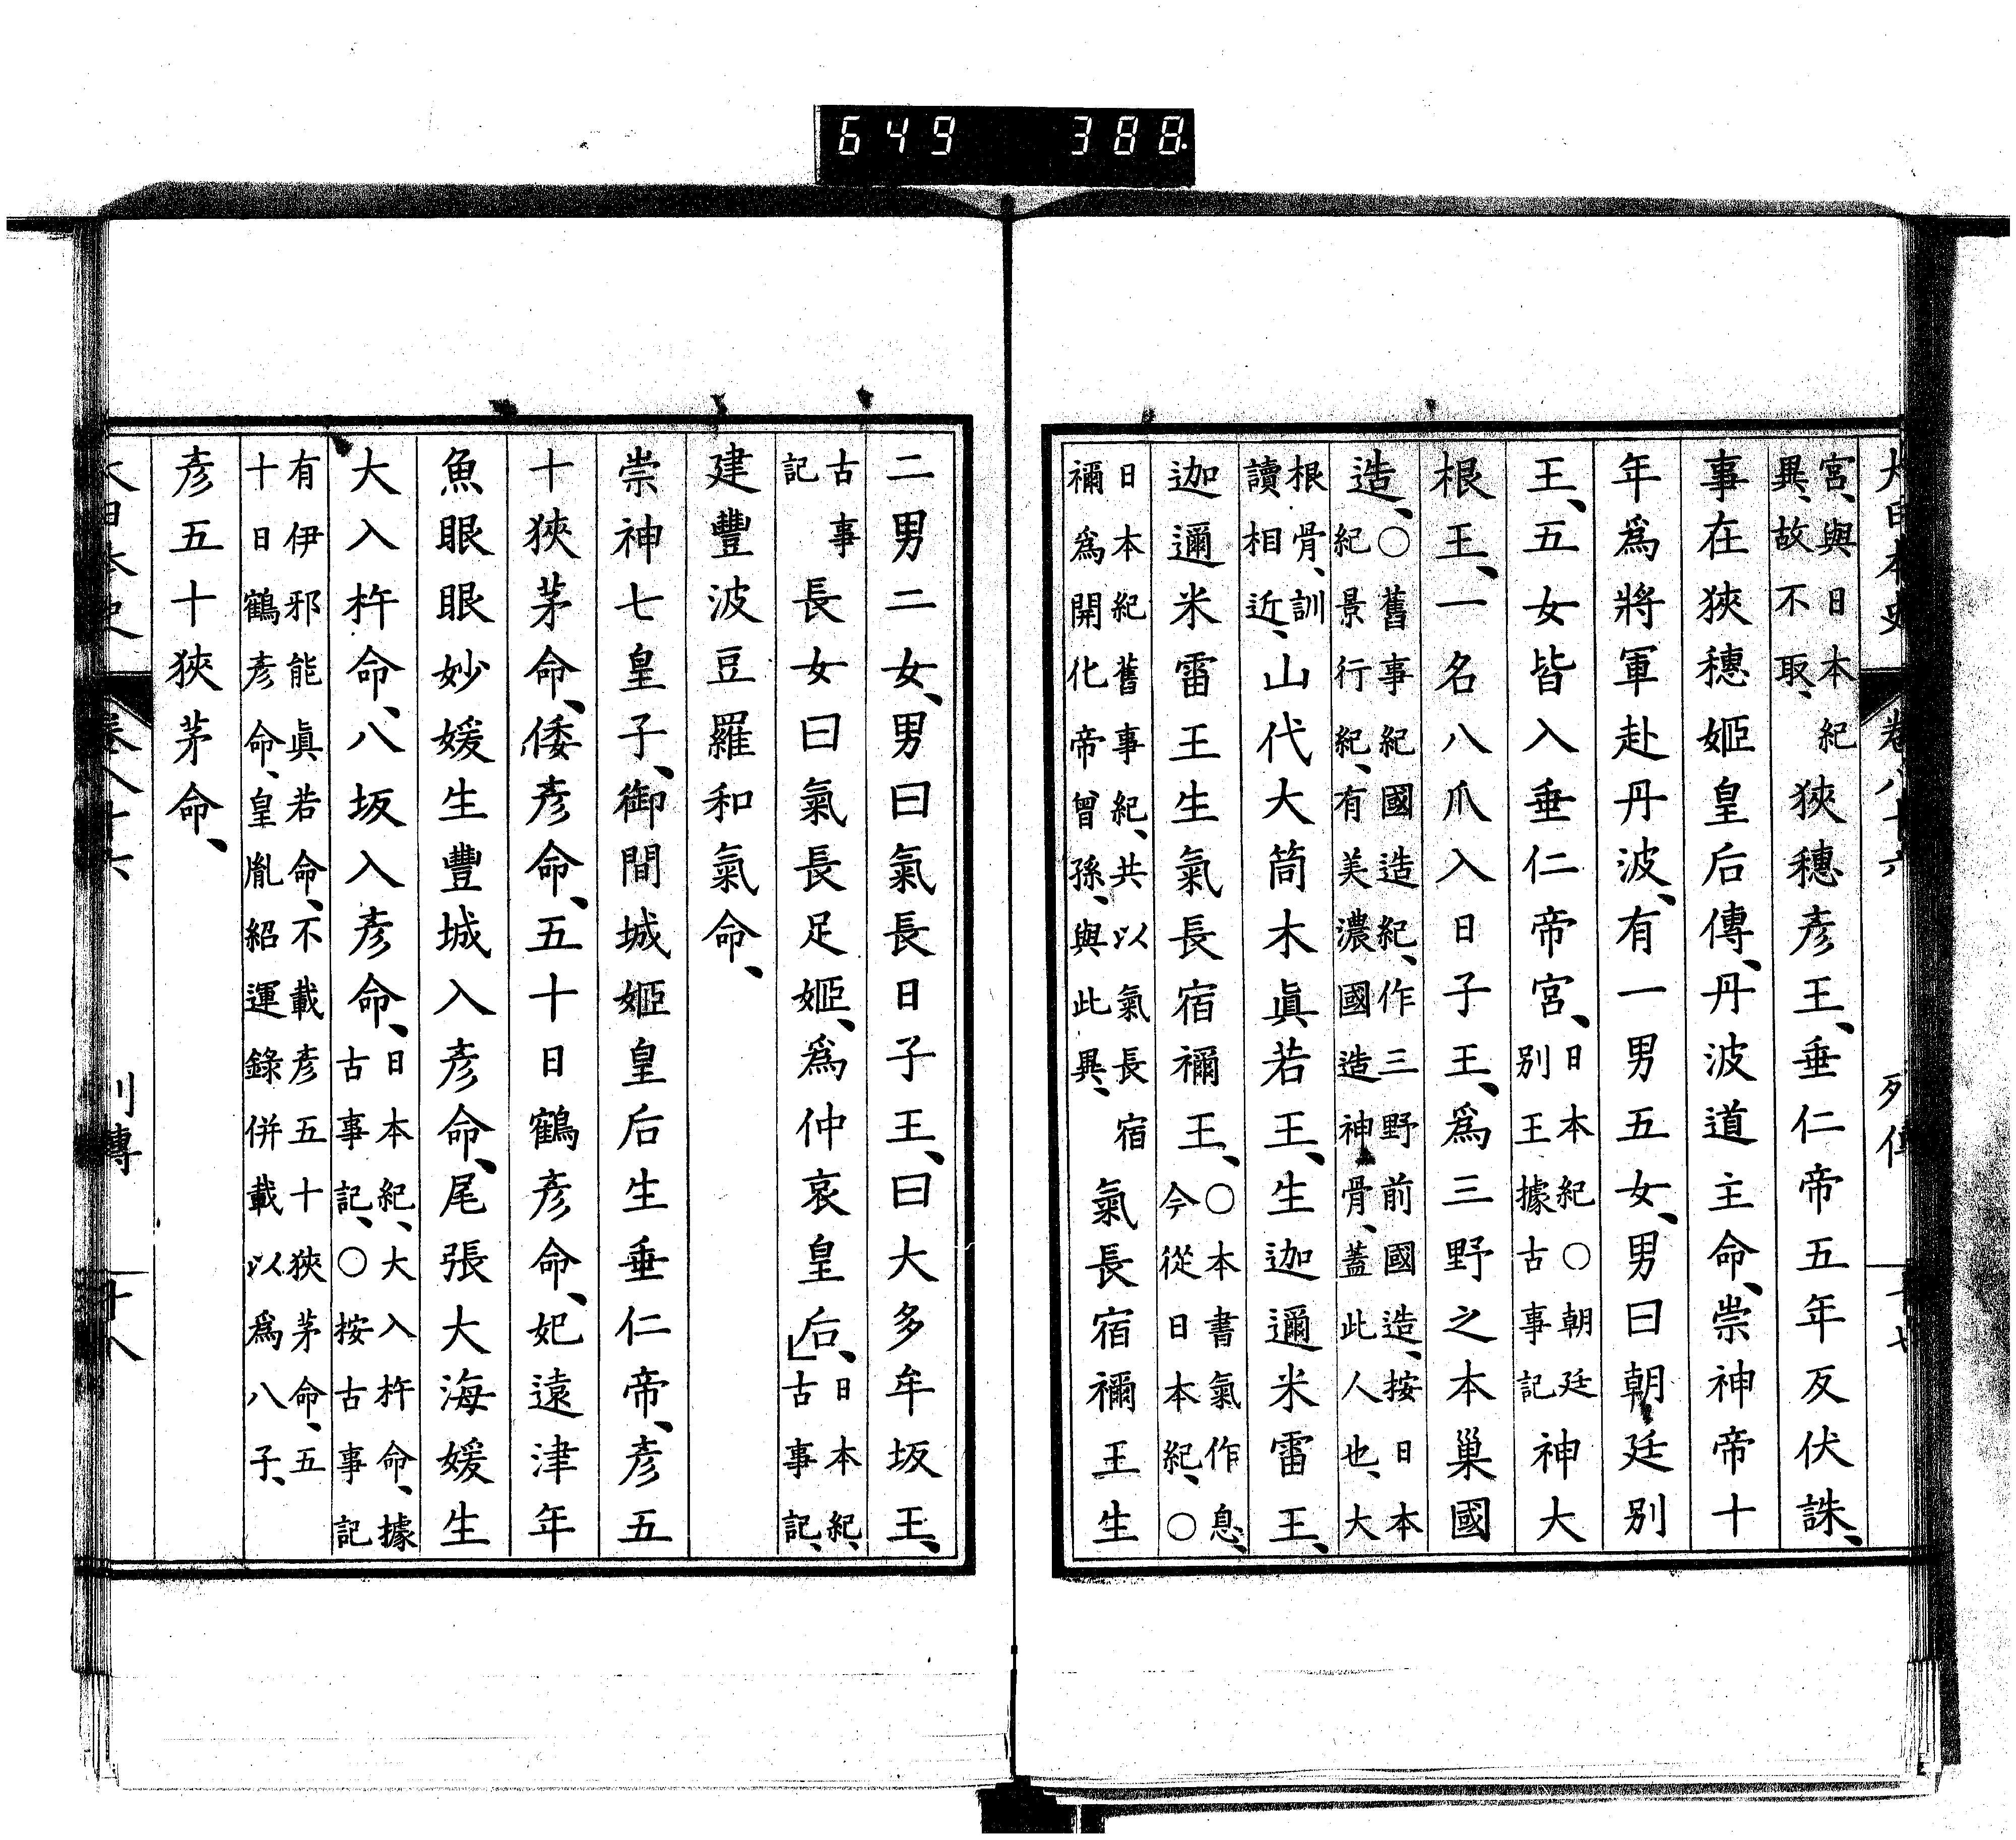 649 388
大日本史 卷八十六 列傳 一 十七
宮、與日本紀
異、故不取、
狹穗彥王、垂仁帝五年反伏誅、
事在狹穗姬皇后傳、丹波道主命、崇神帝十
年爲將軍赴丹波、有一男五女、男曰朝廷別
王、五女皆入垂仁帝宮、
日本紀○朝廷
別王據古事記
神大
根王、一名八爪入日子王、爲三野之本巢國
造、
○舊事紀國造紀、作三野前國造、按日本
紀景行紀、有美濃國造神骨、蓋此人也、大
根骨、訓
讀相近、
山代大筒木眞若王、生迦邇米雷王、
迦邇米雷王生氣長宿禰王、
○本書氣作息、
今從日本紀、○
日本紀舊事紀、共以氣長宿
禰爲開化帝曾孫、與此異、
氣長宿禰王生
二男二女、男曰氣長日子王、曰大多牟坂王、
古事
記
長女曰氣長足姬、爲仲哀皇后、
日本紀、
古事記、
建豐波豆羅和氣命、
崇神七皇子、御間城姬皇后生垂仁帝、彥五
十狹茅命、倭彥命、五十日鶴彥命、妃遠津年
魚眼眼妙媛生豐城入彥命、尾張大海媛生
大入杵命、八坂入彥命、
日本紀、大入杵命、據
古事記、○按古事記
有伊邪能眞若命、不載彥五十狹茅命、五
十日鶴彥命、皇胤紹運錄併載以爲八子、
彥五十狹茅命、
大日本史 卷八十六 列傳 十八